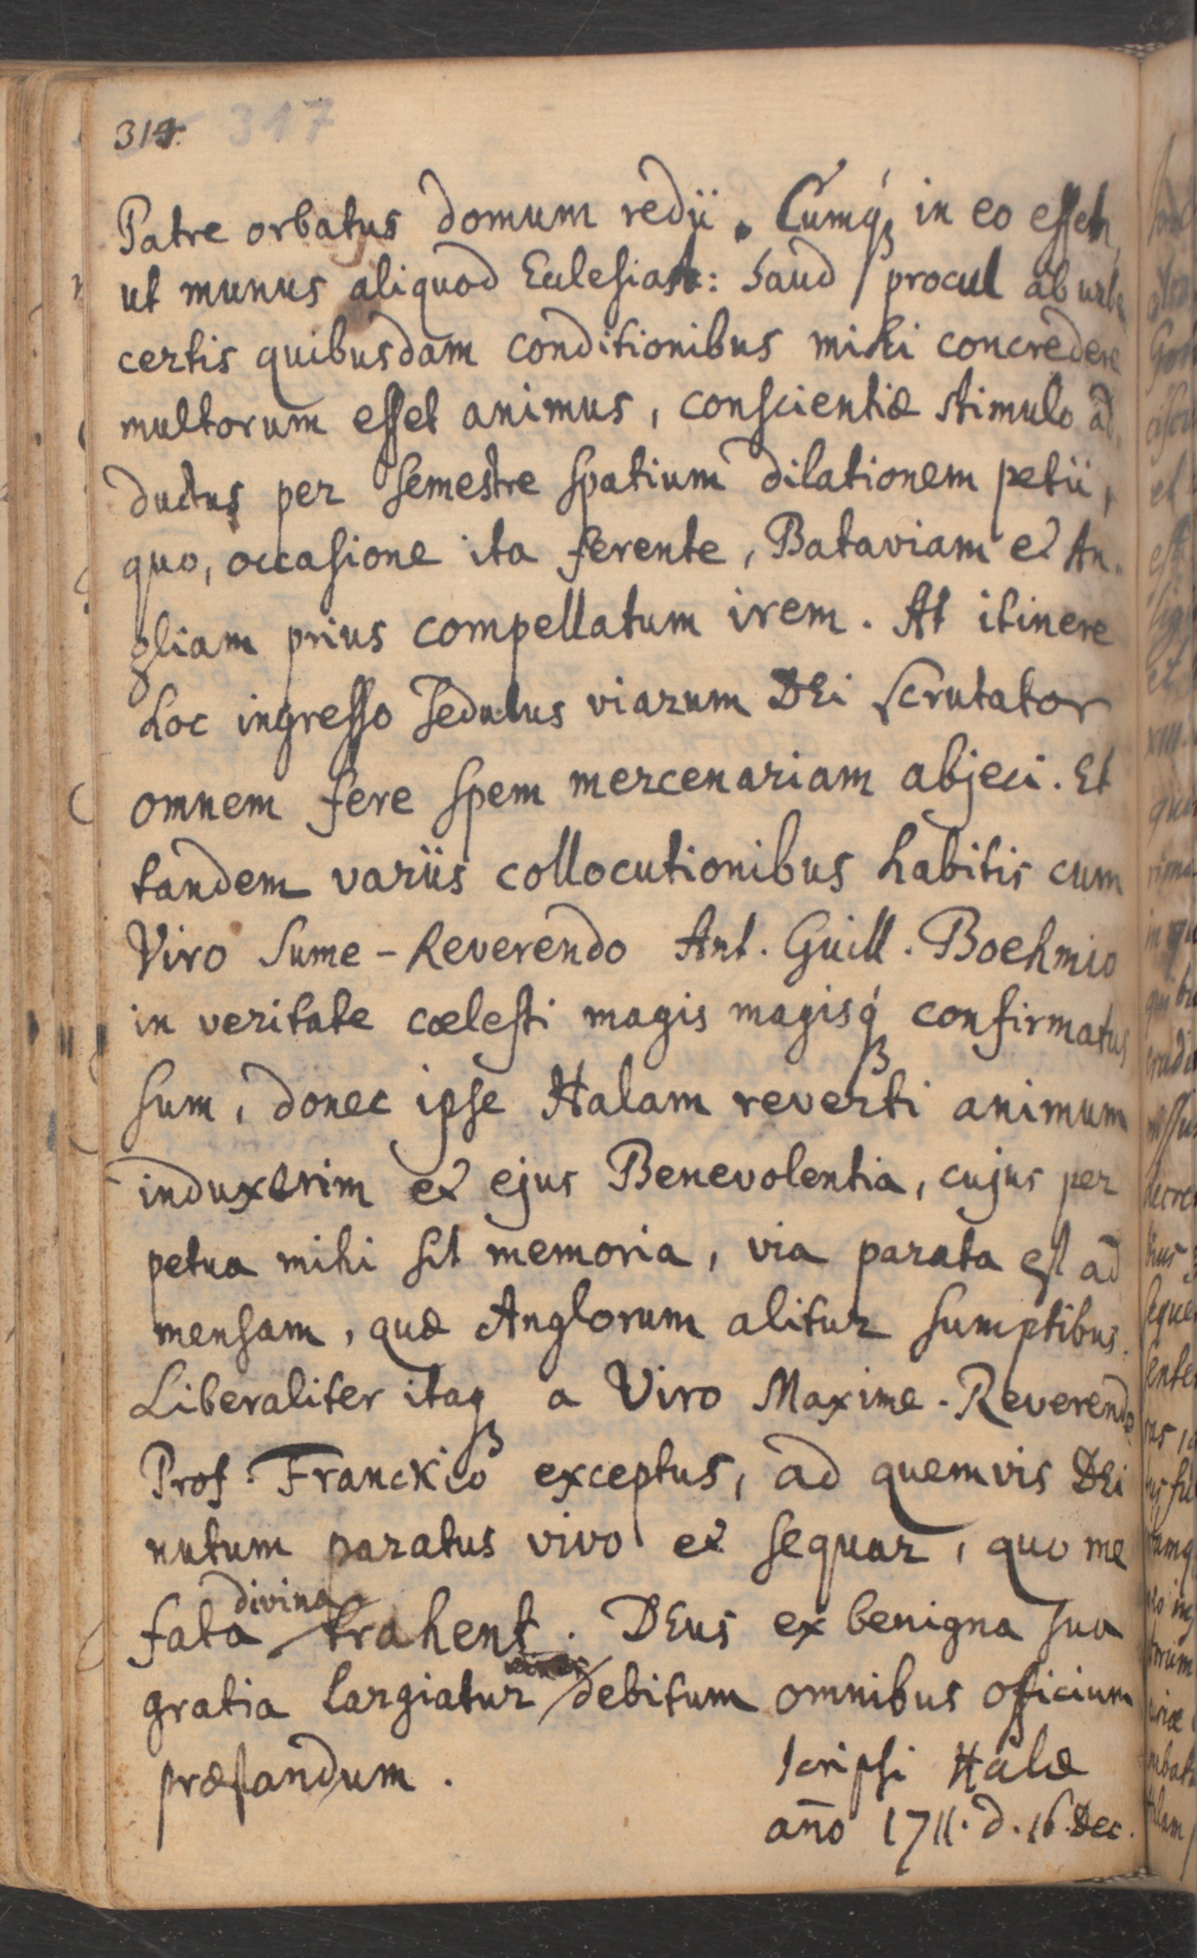 314. 317
Patre orbatus domum redii. Cumq́ꝫ in eo esset,
ut munus aliquod Ecclesiast: haud procul ab urbe
certis quibusdam conditionibus mihi concredere
multorum esset animus, conscientiæ stimulo ad
ductus per semestre spatium dilationem petii,
quo, occasione ita ferente, Bataviam et An-
gliam prius compellatum irem. At itinere
hoc ingresso sedulus viarum DEi scrutator
omnem fere spem mercenariam abjeci. Et
tandem variis collocutionibus habitis cum
Viro Sume-Reverendo Ant. Guill. Boehmio
in veritate cœlesti magis magisq́ꝫ confirmatus
sum, donec ipse Halam reverti animum
induxerim et ejus Benevolentia, cujus per
petua mihi sit memoria, via parata est ad
mensam, quæ Anglorum alitur sumptibus.
Liberaliter itaqꝫ a Viro Maxime-Reverendo
Prof. Franckio exceptus, ad quemvis DEi
nutum paratus vivo et sequar, quo me
divina
fata trahent. DEus ex benigna sua
gratia largiatur debitum omnibus officium
præstandum. scripsi Halæ
año 1711. d. 16. Dec.